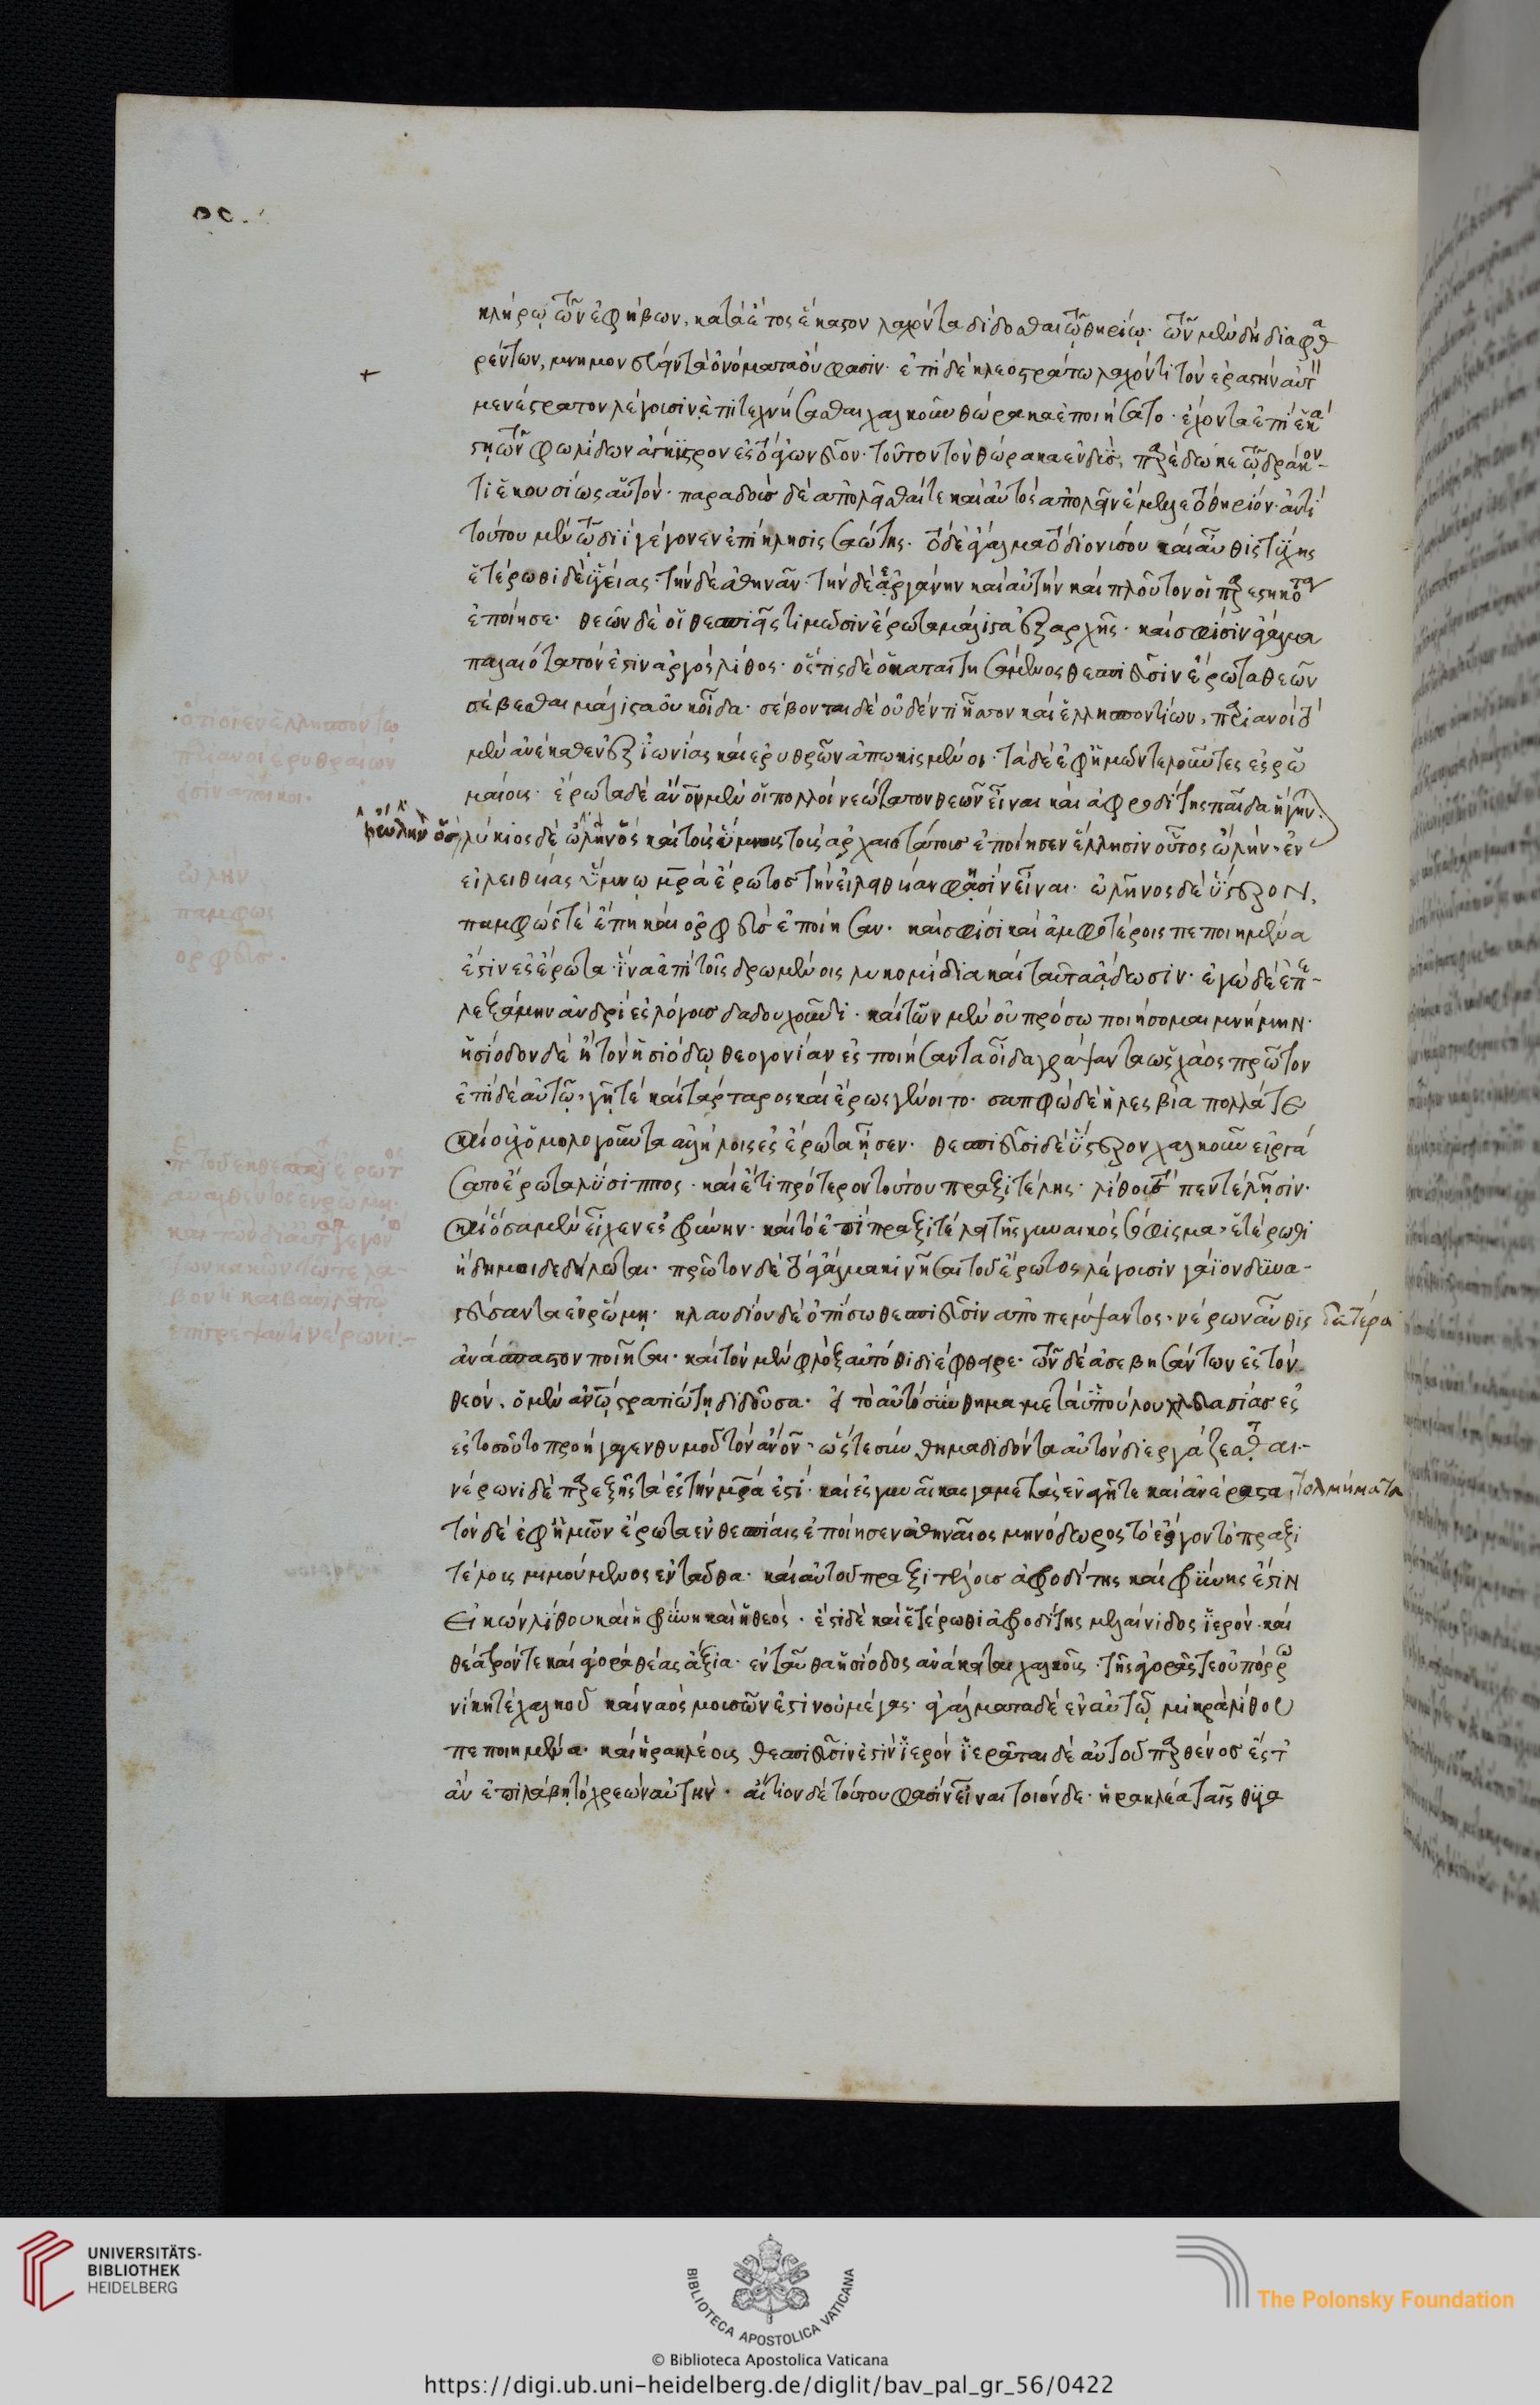 κλήρῳ τῶν ἐφήβων, κατὰ ἔτος ἕκαστον λαχόντα δίδοσθαι τῷ θηρίῳ· τῶν μὲν δὴ διαφθα
ρέντων, μνημονεύειν τὰ ὀνόματα οὔ φασιν· ἐπὶ δὲ κλεοστράτῳ λαχόντι τὸν ἐραστὴν αὐτ
μενέστρατον λέγουσιν ἐπιτεχνήσασθαι χαλκοῦν θώρακα ἐποιήσατο· ἔχοντα ἐπὶ ἑκά
στῃ τῶν φωλίδων ἄγκιστρον ἐς τὸ ἄνω νεῦον· τοῦτον τὸν θώρακα ἐνδὺς, παρέδωκε τῷ δράκον-
τι ἑκουσίως αὑτόν· παραδοὺς δὲ ἀπολεῖσθαί τε καὶ αὐτὸς ἀπολεῖν ἔμελλε τὸ θηρίον· ἀντὶ
τούτου μὲν τῷ διὶ γέγονεν ἐπίκλησις σαώτης· τὸ δὲ ἄγαλμα τὸ διονύσου καὶ αὖθις τύχης
ἑτέρωθι δὲ ὑγείας· τὴν δὲ ἀθηνᾶν· τὴν δὲ ἐργάνην καὶ αὐτὴν καὶ πλοῦτον οἱ παρεστηκότα
ἐποίησε· θεῶν δὲ οἱ θεσπιεῖς τιμῶσιν ἔρωτα μάλιστα ἐξ ἀρχῆς· καὶ σφίσιν ἄγαλμα
παλαιότατόν ἐστιν ἀργὸς λίθος· ὅστις δὲ ὁ καταστησάμενος θεσπιεῦσιν ἔρωτα θεῶν
σέβεσθαι μάλιστα οὐκ οἶδα· σέβονται δὲ οὐδέν τι ἧσσον καὶ ἑλλησποντίων, παριανοὶ ὃ
μὲν ἀνέκαθεν ἐξ ἰωνίας καὶ ἐρυθρῶν ἀπῳκισμένοι· τὰ δὲ ἐφ' ἡμῶν τελοῦντες ἐς ῥω
μαίους· ἔρωτα δὲ ἄνθρωποι μὲν οἱ πολλοὶ νεώτατον θεῶν εἶναι καὶ ἀφροδίτης παῖδα ἥγην
λύκιος δὲ ὠλῆνος καὶ τοὺς ὕμνους τοὺς ἀρχαιοτάτους ἐποίησεν ἕλλησιν οὗτος ὠλὴν· ἐν
εἰλειθυίας ὕμνῳ μητέρα ἔρωτος τὴν εἰλείθυιαν φησὶν εἶναι· ὠλῆνος δὲ ὕστερον,
παμφώς τε ἔπη καὶ ὀρφεὺς ἐποίησαν· καὶ σφισὶ καὶ ἀμφοτέροις πεποιημένα
ἐστὶν ἐς ἔρωτα· ἵνα ἐπὶ τοῖς δρωμένοις λυκομίδαι καὶ ταῦτα ᾄδωσιν· ἐγὼ δὲ ἐπε-
λεξάμην ἀνδρὶ ἐς λόγους δᾳδουχοῦντι· καὶ τῶν μὲν οὐ πρόσω ποιήσομαι μνήμην·
ἡσίοδον δὲ ἢ τὸν ἡσιόδῳ θεογονίαν ἐσποιήσαντα οἶδα γράψαντα ὡς χάος πρῶτον
ἐπὶ δὲ αὐτῷ· γῆ τε καὶ τάρταρος καὶ ἔρως γένοιτο· σαπφὼ δὲ ἡ λεσβία πολλά τε
καὶ οὐχ ὁμολογοῦντα ἀλλήλοις ἐς ἔρωτα ᾖσεν· θεσπιεῦσι δὲ ὕστερον χαλκοῦν εἰργά
σατο ἔρωτα λύσιππος· καὶ ἔτι πρότερον τούτου πραξιτέλης· λίθου τοῦ πεντέλῃσιν·
καὶ ὅσα μὲν εἶχεν ἐς φρύνην· καὶ τὸ ἐπὶ πραξιτέλει τῆς γυναικὸς σόφισμα· ἑτέρωθι
ἤδη μοι δεδήλωται· πρῶτον δὲ τὸ ἄγαλμα κινῆσαι τοῦ ἔρωτος λέγουσιν γάϊον δυνα-
στεύσαντα ἐν ῥώμῃ· κλαυδίου δὲ ὀπίσω θεσπιεῦσιν ἀποπέμψαντος· νέρων αὖθις δεύτερα
ἀνάσπαστον ποιῆσαι· καὶ τὸν μὲν φλὸξ αὐτόθι διέφθειρε· τῶν δὲ ἀσεβησάντων ἐς τὸν
θεόν· ὁ μὲν ἀνθρώπῳ στρατιώτῃ διδοὺς ἀ· εὶ τὸ αὐτὸ σύνθημα μετὰ ὑπούλου χλευασίας ἐς
ἐς τοσοῦτο προήγαγεν θυμοῦ τὸν ἄνθρωπον· ὥστε σύνθημα διδόντα αὐτὸν διεργάζεσθαι·-
νέρωνι δὲ παρὲξ ἢ τὰ ἐς τὴν μητέρα ἐστί· καὶ ἐς γυναῖκας γαμετὰς ἐναγῆ τε καὶ ἀνέραστα τολμήματα
τὸν δὲ ἐφ' ἡμῶν ἔρωτα ἐν θεσπιαῖς ἐποίησεν ἀθηναῖος μηνόδωρος τὸ ἔργον τὸ πραξι
τέλους μιμούμενος ἐνταῦθα· καὶ αὐτοῦ πραξιτέλους ἀφροδίτης καὶ φρύνης ἐστὶν
εἰκὼν λίθου καὶ ἡ φρύνη καὶ ἡ θεός· ἔστι δὲ καὶ ἑτέρωθι ἀφροδίτης μελαινίδος ἱερόν· καὶ
θέατρόν τε καὶ ἀγορὰ θέας ἄξια· ἐνταῦθα ἡσίοδος ἀνάκειται χαλκοῦς· τῆς ἀγορᾶς τε οὐ πόρρω
νίκη τέ χαλκοῦ καὶ ναὸς μουσῶν ἐστιν οὐ μέγας· ἀγάλματα δὲ ἐν αὐτῷ μικρὰ λίθου
πεποιημένα· καὶ ἡρακλέους θεσπιεῦσίν ἐστιν ἱερόν ἱερᾶται δὲ αὐτοῦ παρθένος ἔς τ'
ἂν ἐπιλάβῃ τὸ χρεὼν αὐτήν· αἴτιον δὲ τούτου φασὶν εἶναι τοιόνδε· ἡρακλέα ταῖς θυγα
ὠλην
παμφως
ορφευς·
UNIVERSITÄTS-
BIBLIOTHEK
HEIDELBERG
BIBLIOTECA APOSTOLICA VATICANA
The Polonsky Foundation
© Biblioteca Apostolica Vaticana
https://digi.ub.uni-heidelberg.de/diglit/bav_pal_gr_56/0422